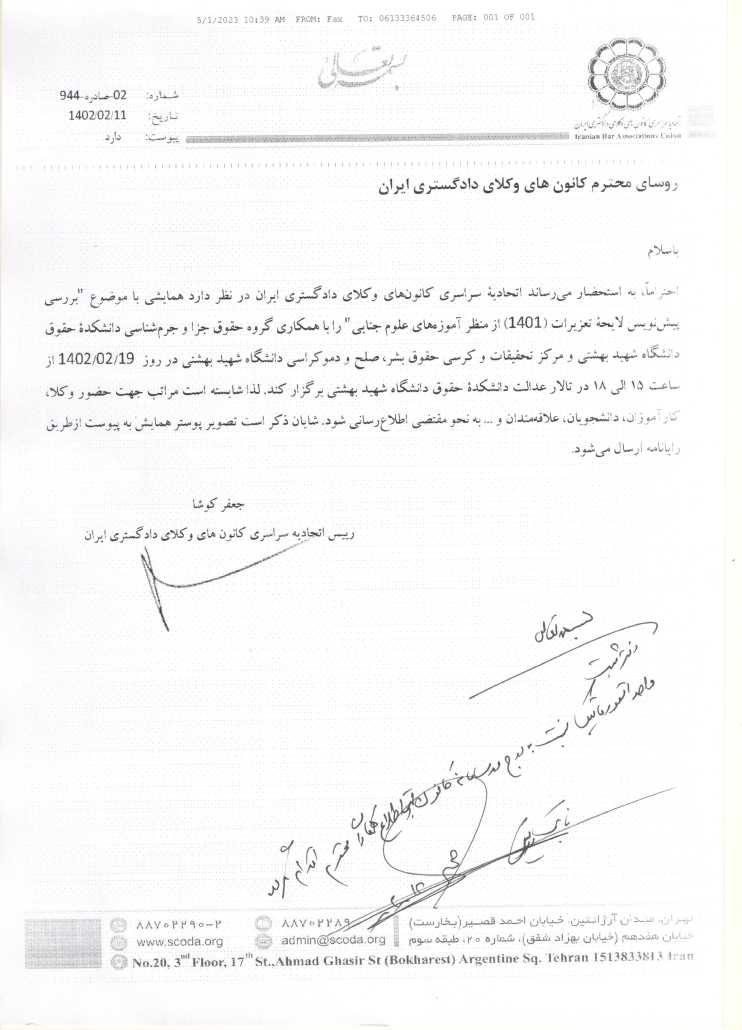 5/1/2023 10:39 AM FROM: Fax TO: 06133364506 PAGE: 001 OF 001
بسمه تعالی
شماره: 02-صادره-944
تاریخ: 1402/02/11
پیوست: دارد
اتحادیه سراسری کانون های وکلای دادگستری ایران
Iranian Bar Associations Union
روسای محترم کانون های وکلای دادگستری ایران
باسلام
احتراماً، به استحضار می‌رساند اتحادیهٔ سراسری کانون‌های وکلای دادگستری ایران در نظر دارد همایشی با موضوع "بررسی
پیش‌نویس لایحهٔ تعزیرات (1401) از منظر آموزه‌های علوم جنایی" را با همکاری گروه حقوق جزا و جرم‌شناسی دانشکدهٔ حقوق
دانشگاه شهید بهشتی و مرکز تحقیقات و کرسی حقوق بشر، صلح و دموکراسی دانشگاه شهید بهشتی در روز 1402/02/19 از
ساعت ۱۵ الی ۱۸ در تالار عدالت دانشکدهٔ حقوق دانشگاه شهید بهشتی برگزار کند. لذا شایسته است مراتب جهت حضور وکلا،
کارآموزان، دانشجویان، علاقه‌مندان و ... به نحو مقتضی اطلاع‌رسانی شود. شایان ذکر است تصویر پوستر همایش به پیوست ازطریق
رایانامه ارسال می‌شود.
جعفر کوشا
رییس اتحادیه سراسری کانون های وکلای دادگستری ایران
بسمه تعالی
دفتر ثبت
نسبت به درج در سامانه کانون اطلاع همکاران محترم اقدام
تهران، میدان آرژانتین، خیابان احمد قصیر(بخارست)
خیابان هفدهم (خیابان بهزاد شفق)، شماره ۲۰، طبقه سوم
۸۸۷۰۲۲۸۹
admin@scoda.org
۸۸۷۰۲۲۹۰-۲
www.scoda.org
No.20, 3nd Floor, 17th St.,Ahmad Ghasir St (Bokharest) Argentine Sq. Tehran 1513833813 Iran